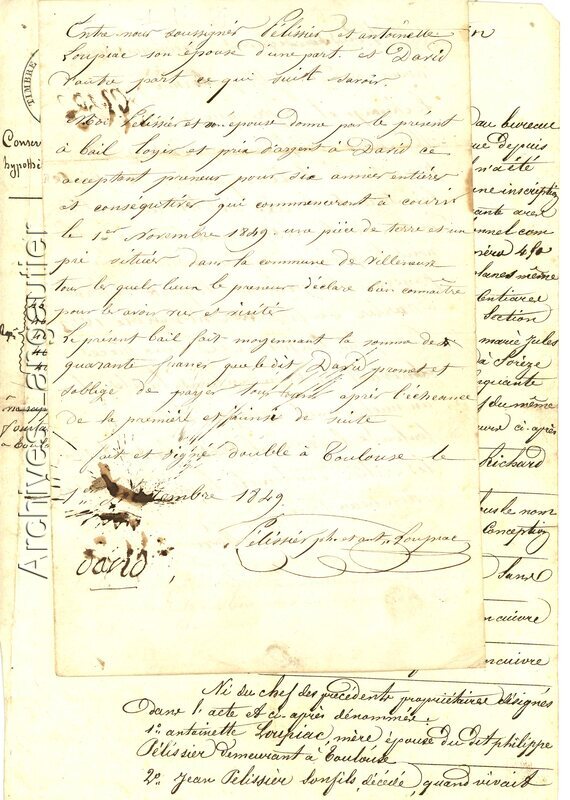 Entre nous soussignés Pélissier et antoinette
Loupiac son épouse d'une part. et David
d'autre part ce qui suit savoir.
Moi Pélissier et épouse donne par le présent
à bail loyer et prix d'argent à David ce
acceptant preneur pour six années entières
et consequtives qui commenceront à courir
le 1er Novembre 1849. une pièce de terre et un
pré situés dans la commune de Villeneuve
tous les quels lieux le preneur déclare bien connaître
pour le avoir vus et visités
Le présent bail fait moyennant la somme de
quarante francs que le dit David promet et
s'oblige de payer tous après l'échéance
de la première et ainsi de suite
fait et signé double à Toulouse le
1er tembre 1849
Pélissier ph et ant. Loupiac
david
TIMBRE
Conser
hypothè
Archives-Langeutier
dau bureau
que depuis
n'a été
une inscription
même
Section
marie jules
à Sorèze
du même
ci-après
Richard
le nom
Conception
Sans
cuivre
Ni du chef des précédents propriétaires désignés
dans l'acte et ci-après dénommés.
1o. antoinette Loupiac, mère, épouse du dit philippe
Pélissier demeurant à Toulouse
2o. Jean Pélissier son fils, décédé, quand vivait